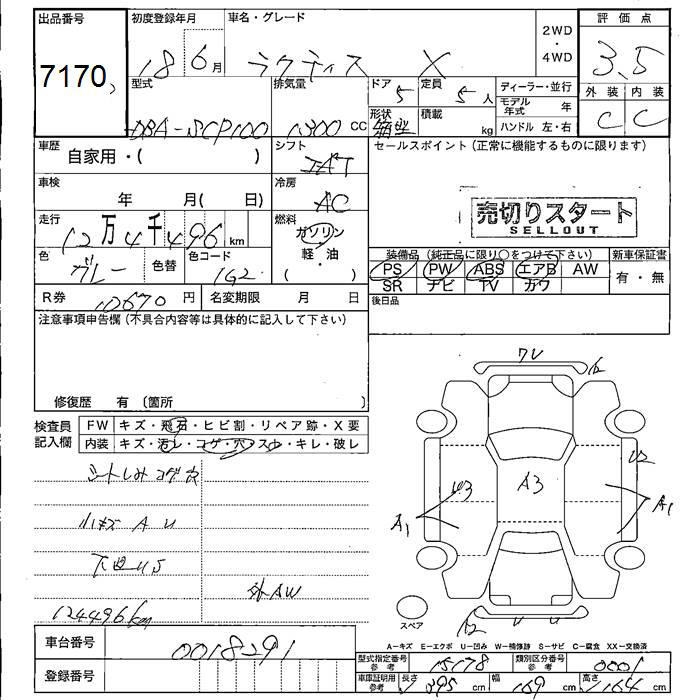 出品番号 初度登録年月 車名・グレード 2WD・4WD 評価点
7170 18 6月 ラクティス X 3.5
型式 排気量 ドア 定員 ディーラー・並行 外装 内装
DBA-SCP100 1300 CC 5 5人 モデル年式 年 C C
形状 箱型 積載 kg ハンドル 左・右
車歴 自家用・( ) シフト IAT セールスポイント(正常に機能するものに限ります)
車検 年 月( 日) 冷房 AC
売切りスタート
SELLOUT
走行 12万4千496km 燃料 ガソリン 軽・油 ( ・ )
色 グレー 色替 色コード 1G2
装備品(純正品に限り○をつけて下さい) 新車保証書
PS PW ABS エアB AW 有・無
SR ナビ TV カワ
R券 10670円 名変期限 月 日 後日品
注意事項申告欄(不具合内容等は具体的に記入して下さい)
修復歴 有 (箇所 )
検査員記入欄 FW キズ・飛石・ヒビ割・リペア跡・X要
内装 キズ・汚レ・コゲ・穴・スレ・キレ・破レ
シートしみコゲ穴
小キズ A U
下廻りS
外AW
124496km
A3
U3
U2
A1
A1
A2
スペア
A-キズ E-エクボ U-凹み W-補修跡 S-サビ C-腐食 XX-交換済
車台番号 0018291
登録番号
型式指定番号参考 15178 類別区分番号参考 0001
車庫証明用参考 長さ 395cm 幅 169cm 高さ 164cm